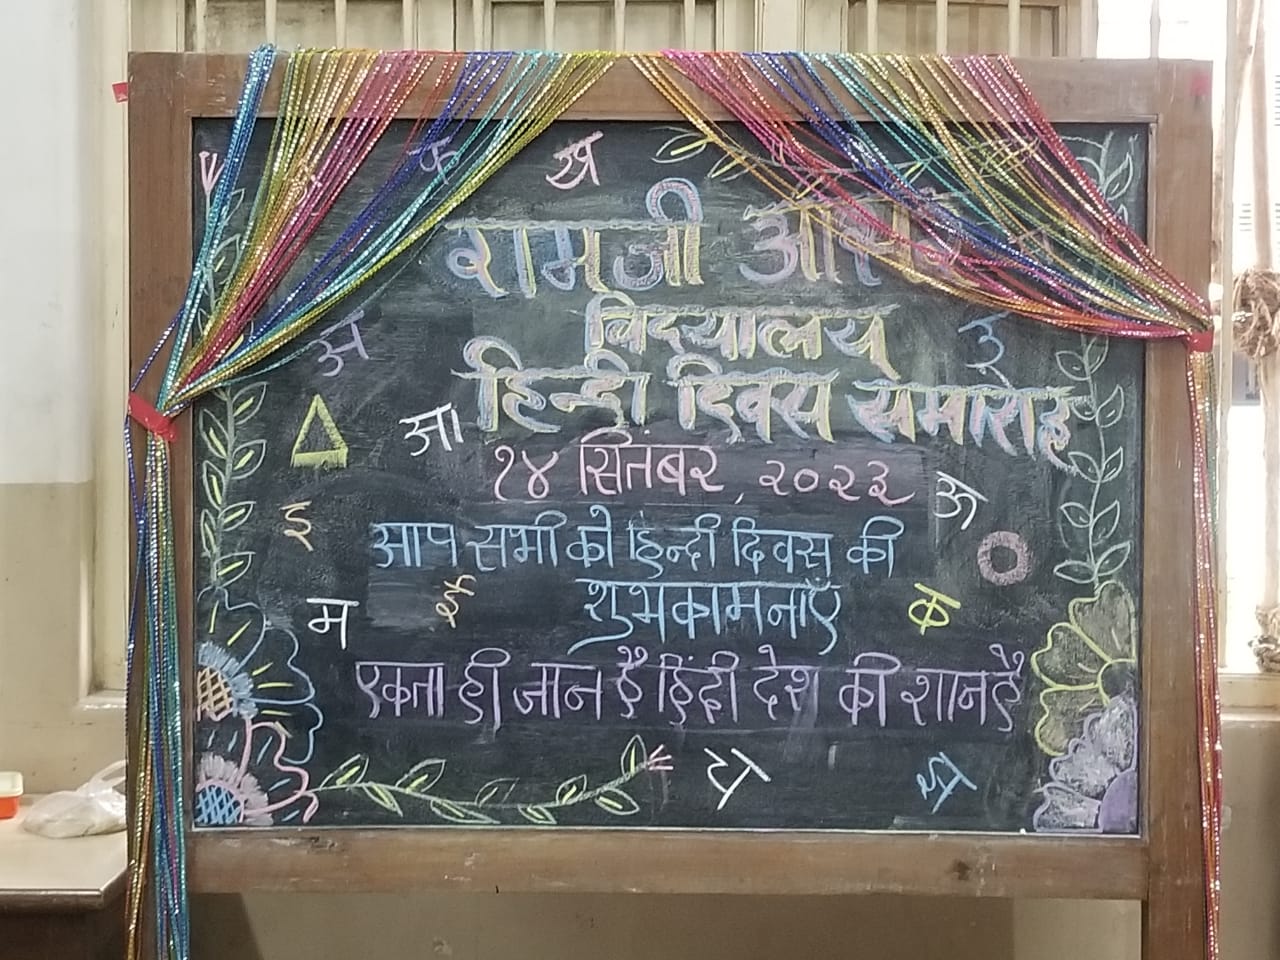 फ ख
रामजी आसर
विद्यालय
अ उ
हिन्दी दिवस समारोह
आ
१४ सितंबर, २०२३
इ ऊ
आप सभी को हिन्दी दिवस की
शुभकामनाएँ
म ई क
एकता ही जान है हिंदी देश की शान है
य